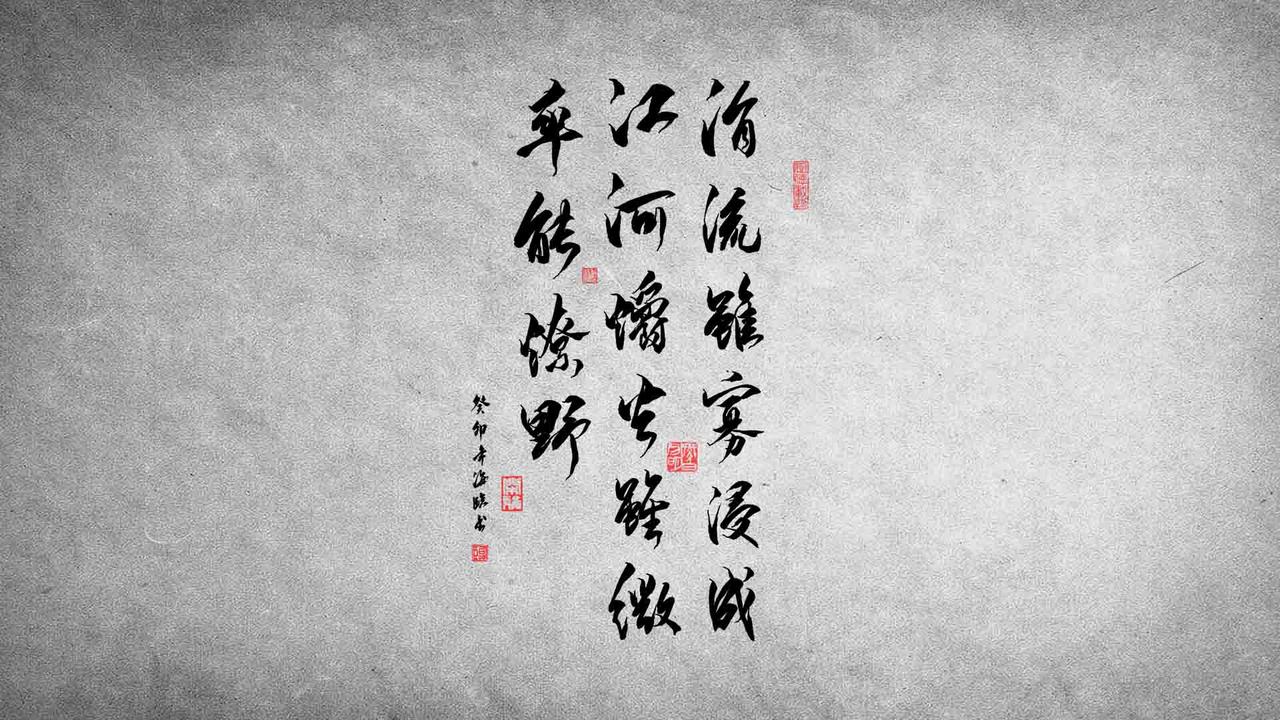 涓流雖寡浸成
江河爝火雖微
卒能燎野
癸卯年